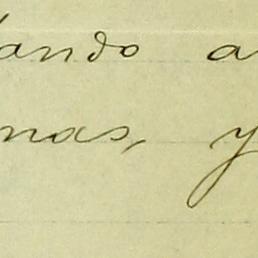 tando a
nas, y